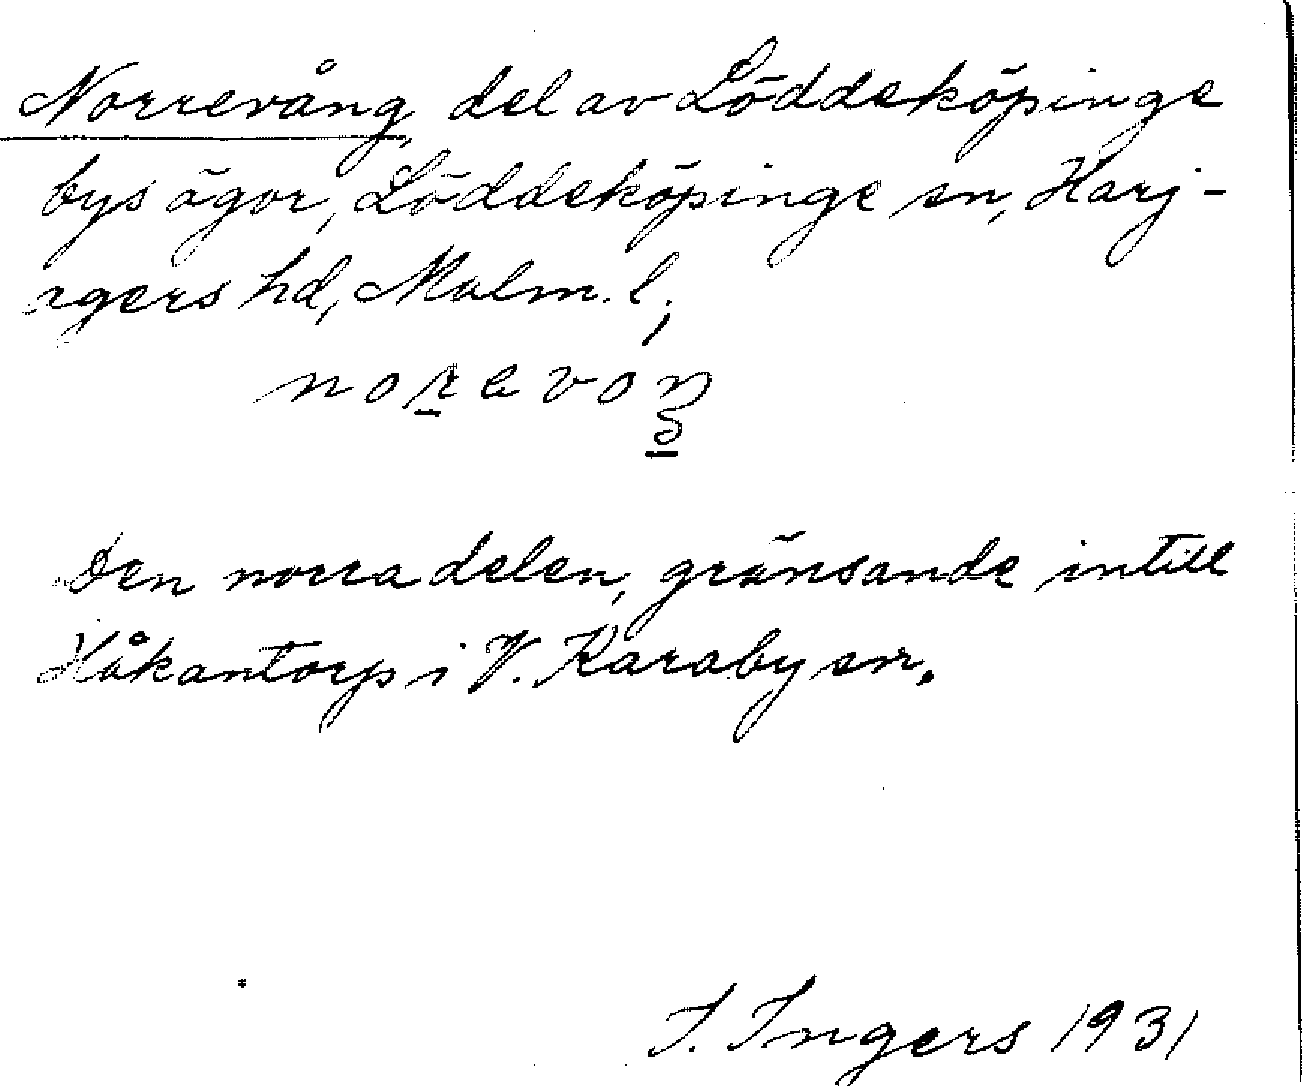 Norrevång, del av Löddeköpinge
bys ägor, Löddeköpinge sn, Harj-
agers hd, Malm. l;
norevoŋ
Den norra delen, gränsande intill
Håkantorp i V. Karaby sn.
I. Ingers 1931